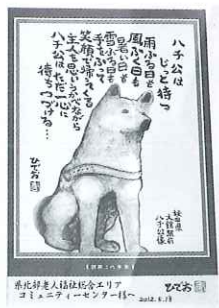 ハチ公は
じっと待つ
雨ふる日も
風ふく日も
暑い日も
雪ふる日も
手をふって
笑顔で帰ってくる
主人を思いうかべながら
ハチ公はただ一心に
待ちつづける…
ひでお
秋田県
大館駅前
ハチ公像
県北部老人福祉総合エリア
コミュニティーセンター様へ
ひでお
2012.8.19